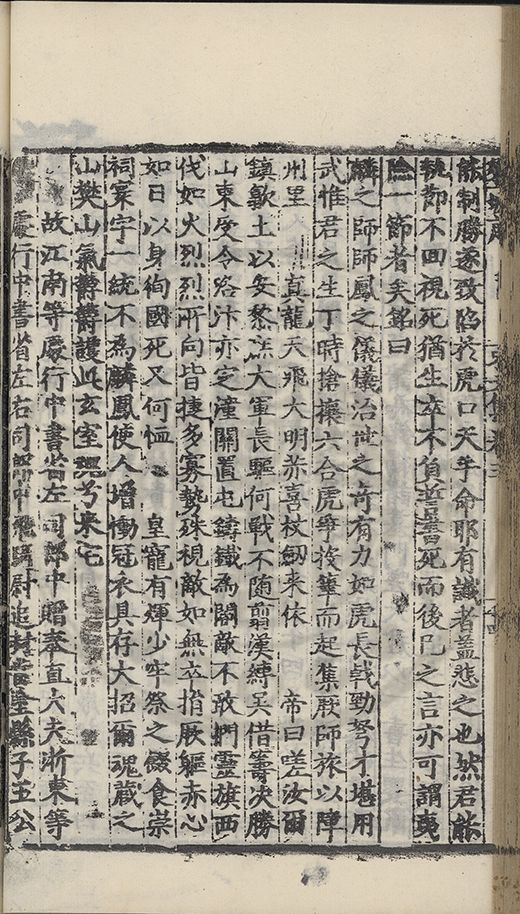 能制勝遂致陷於虎口天乎命耶有識者盖悲之也然君能
執節不回視死猶生卒不負善書死而後已之言亦可謂夷
險一節者矣銘曰
麟之師師鳳之儀儀治世之竒有力如虎長戟勁弩才堪用
武惟君之生丁時搶攘六合虎爭投筆而起集厥師旅以障
州里 真龍天飛大明赤喜杖劒来依 帝曰嗟汝爾
鎮歙土以安黎庶大軍長驅何戰不随翦漢縛吴借籌决勝
山東受令洛汴亦定潼關置屯鑄鐵為閫敵不敢捫靈旗西
伐如火烈烈所向皆捷多寡勢殊視敵如無立指厥軀赤心
如日以身徇國死又何恤 皇寵有煇少牢祭之餟食崇
祠寰宇一統不為麟鳳使人增慟冠衣具存大招爾魂藏之
山樊山氣欝欝護此玄室無兮来宅
故江南等處行中書省左司郎中贈奉直大夫浙東等
處行中書省左右司郎中飛騎尉追封當塗縣子王公